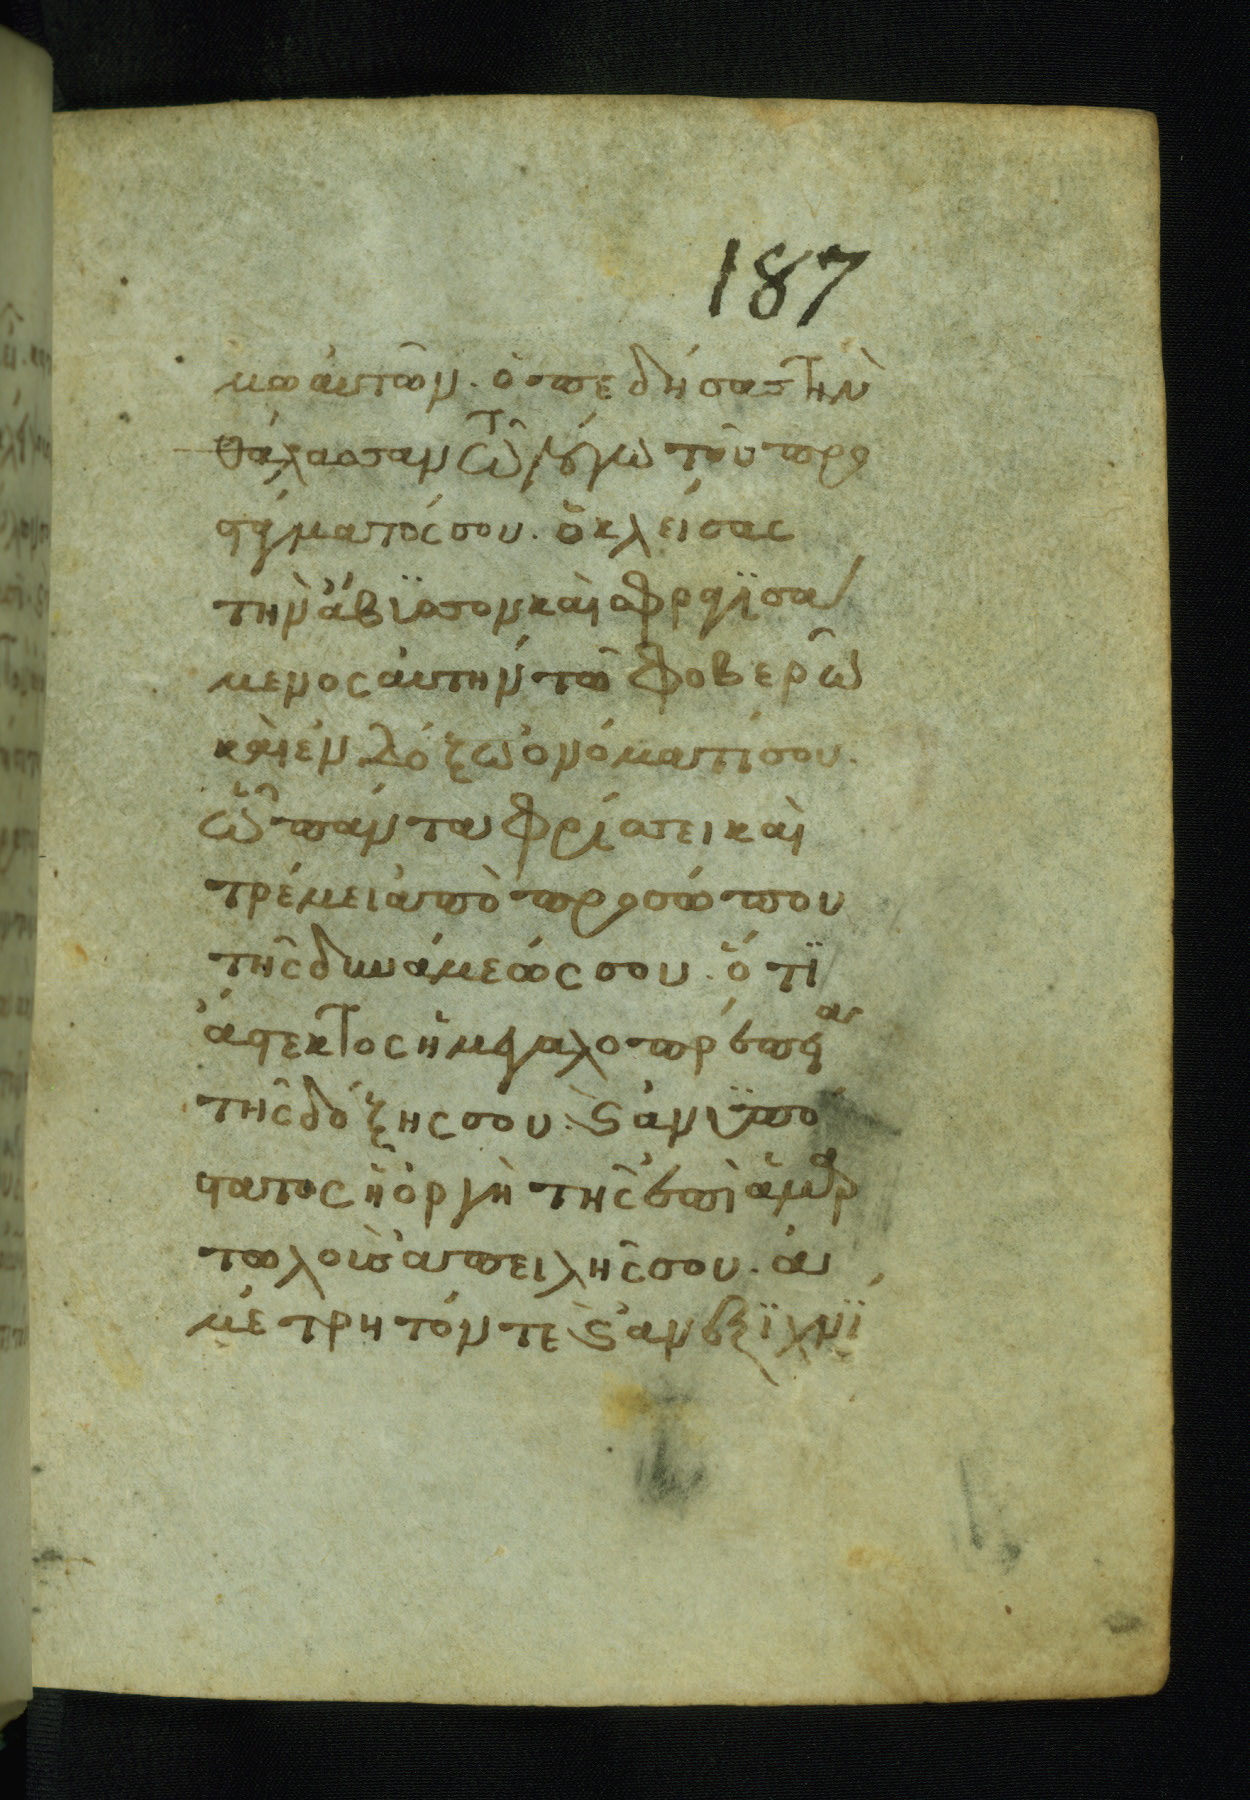 187
μω αυτῶν. ὁ πεδήσας τὴν
θάλασσαν τῶ λόγω τοῦ προ
στάγματός σου. ὁ κλείσας
τὴν ἄβϋσσον καὶ σφραγϊσά
μενος αὐτὴν τῶ φοβερῶ
καὶ ἐνδόξω ὀνόματί σου.
ὧ πάντα φρίσσει καὶ
τρέμει ἀπὸ προσώπου
τῆς δυνάμεώς σου. ὅτϊ
ἄστεκτος ἡ μεγαλοπρέπεια
τῆς δόξης σου. ϗ ἀνϋπό
στατος ἡ ὀργὴ τῆς ἐπὶ ἁμαρ
τωλοῖς ἀπειλῆς σου. ἀ
μέτρητόν τε ϗ ἀνεξϊχνί